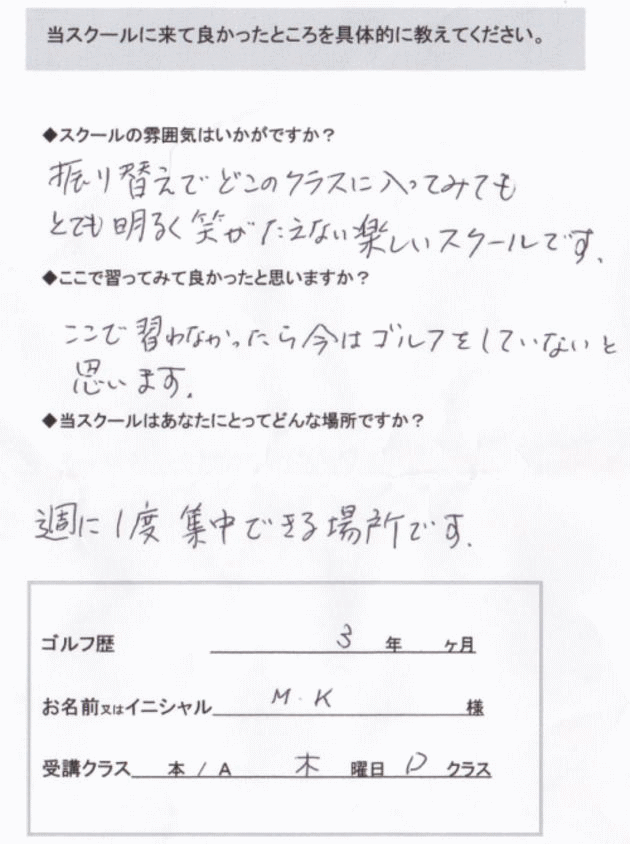 当スクールに来て良かったところを具体的に教えてください。
◆スクールの雰囲気はいかがですか？
振り替えでどこのクラスに入ってみても
とても明るく笑がたえない楽しいスクールです.
◆ここで習ってみて良かったと思いますか？
ここで習わなかったら今はゴルフをしていないと
思います.
◆当スクールはあなたにとってどんな場所ですか？
週に1度集中できる場所です.
ゴルフ歴 3 年 ヶ月
お名前又はイニシャル M.K 様
受講クラス 本 / A 木 曜日 D クラス